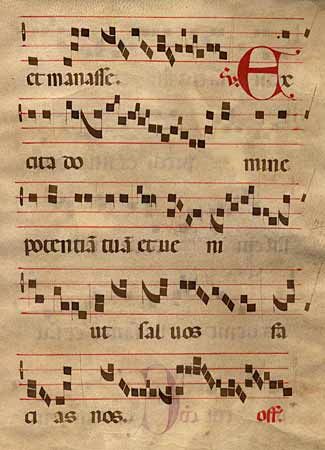 et manasse. ℣. Ex
cita do mine
potentiā tuā et ue ni
ut sal uos fa
ci as nos. off.